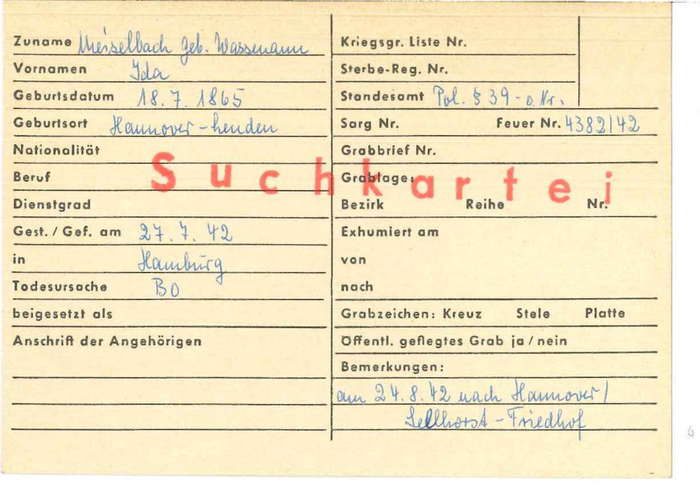 Zuname Meiselbach geb. Wassmann
Vornamen Ida
Geburtsdatum 18.7.1865
Geburtsort Hannover-Linden
Nationalität
Beruf
Dienstgrad
Gest./Gef. am 27.7.42
in Hamburg
Todesursache BO
beigesetzt als
Anschrift der Angehörigen
Suchkartei
Kriegsgr. Liste Nr.
Sterbe-Reg. Nr.
Standesamt Pol. § 39-o.Nr.
Sarg Nr. Feuer Nr. 4382/42
Grabbrief Nr.
Grablage:
Bezirk Reihe Nr.
Exhumiert am
von
nach
Grabzeichen: Kreuz Stele Platte
Öffentl. geflegtes Grab ja/nein
Bemerkungen:
am 24.8.42 nach Hannover/
Sellhorst-Friedhof